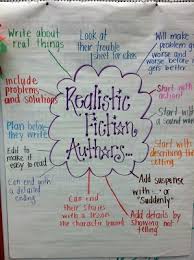 Write about
real things
Look at
their trouble
sheet for ideas
Will make
problems get
worse and
worse before it
gets better
Include
problems
and solutions
Start with
action!
Realistic
Fiction
Authors...
Plan before
they write
Start with
a sound
Add to
make it
easy to read
Start with
describing the
setting
Can end with
a detailed
ending
Add suspense
with -- or ...
"Suddenly"
Can end
their stories
with a lesson
the character learned
Add details by
showing not
telling